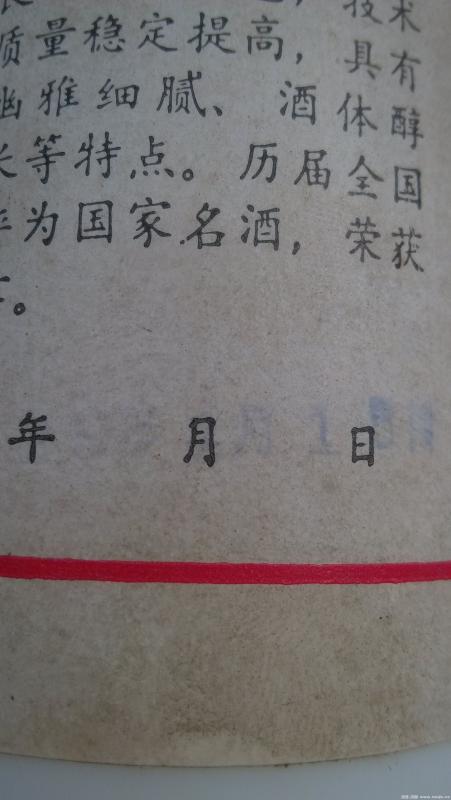 技术
质量稳定提高，具有
幽雅细腻、酒体醇
长等特点。历届全国
评为国家名酒，荣获
。
年 月 日